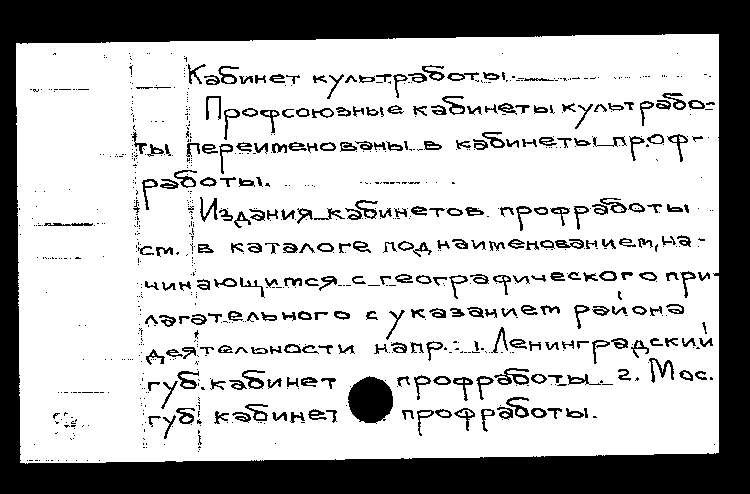 Кабинет культработы.
Профсоюзные кабинеты культрабо-
ты переименованы в кабинеты проф-
работы.
Издания кабинетов профработы
см. в каталоге под наименованием, на-
чинающимся с географического при-
лагательного с указанием района
деятельности напр.: 1. Ленинградский
губ. кабинет профработы. 2. Мос.
губ. кабинет профработы.